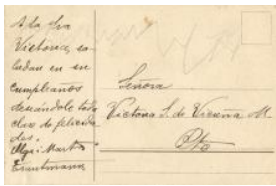 A la Sra
Victoria, sa-
ludan en su
cumpleaños
deseándole toda
clase de felicida
des.
Olga i Marta
Trautmann
Señora
Victoria S. de Vicuña M
Pte